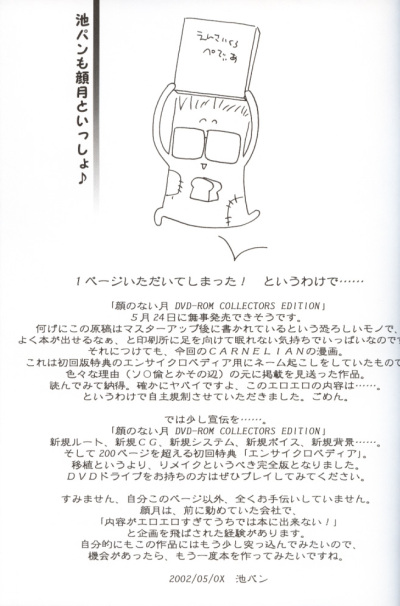 池パンも顔月といっしょ♪
えんさいくろ
ぺでぃあ
1ページいただいてしまった！　というわけで……
「顔のない月 DVD-ROM COLLECTORS EDITION」
5月24日に無事発売できそうです。
何げにこの原稿はマスターアップ後に書かれているという恐ろしいモノで、
よく本が出せるなぁ、と印刷所に足を向けて眠れない気持ちでいっぱいなのです
それにつけても、今回のCARNELIANの漫画。
これは初回版特典のエンサイクロペディア用にネーム起こしをしていたもので
色々な理由（ソ○倫とかその辺）の元に掲載を見送った作品。
読んでみて納得。確かにヤバイですよ、このエロエロの内容は……。
というわけで自主規制させていただきました。ごめん。
では少し宣伝を……。
「顔のない月 DVD-ROM COLLECTORS EDITION」
新規ルート、新規CG、新規システム、新規ボイス、新規背景……。
そして200ページを超える初回特典「エンサイクロペディア」。
移植というより、リメイクというべき完全版となりました。
DVDドライブをお持ちの方はぜひプレイしてみてください。
すみません、自分このページ以外、全くお手伝いしていません。
顔月は、前に勤めていた会社で、
「内容がエロエロすぎてうちでは本に出来ない！」
と企画を飛ばされた経験があります。
自分的にもこの作品にはもう少し突っ込んでみたいので、
機会があったら、もう一度本を作ってみたいですね。
2002/05/0X　池パン